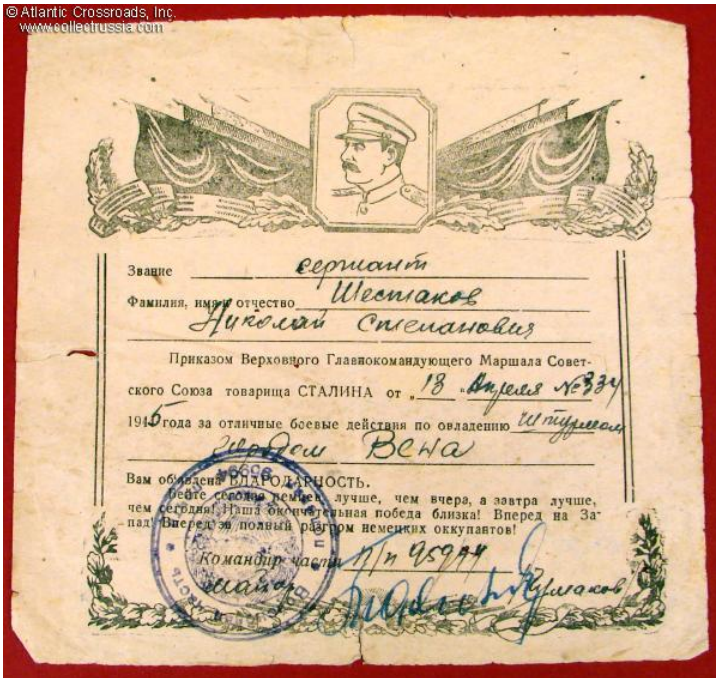 © Atlantic Crossroads, Inc.
www.collectrussia.com
Звание сержант
Фамилия, имя и отчество Шестаков
Николай Степанович
Приказом Верховного Главнокомандующего Маршала Совет-
ского Союза товарища СТАЛИНА от „13 „ Апреля № 334
1945 года за отличные боевые действия по овладению штурмом
городом Вена
Вам об'явлена БЛАГОДАРНОСТЬ.
Бейте сегодня немцев лучше, чем вчера, а завтра лучше,
чем сегодня! Наша окончательная победа близка! Вперед на За-
пад! Вперед за полный разгром немецких оккупантов!
Командир части п/п
майор Чурмаков